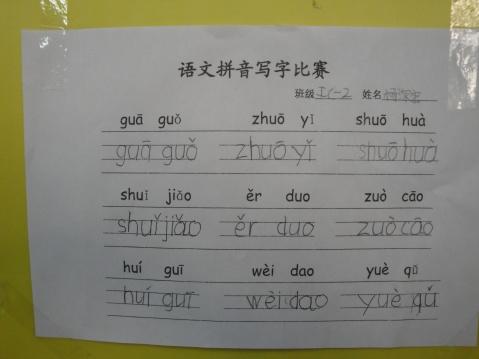 语文拼音写字比赛
班级 IC-2 姓名
guā guǒ zhuō yǐ shuō huà
guā guǒ zhuō yǐ shuō huà
shuǐ jiǎo ěr duo zuò cāo
shuǐ jiǎo ěr duo zuò cāo
huí guī wèi dao yuè qǔ
huí guī wèi dao yuè qǔ